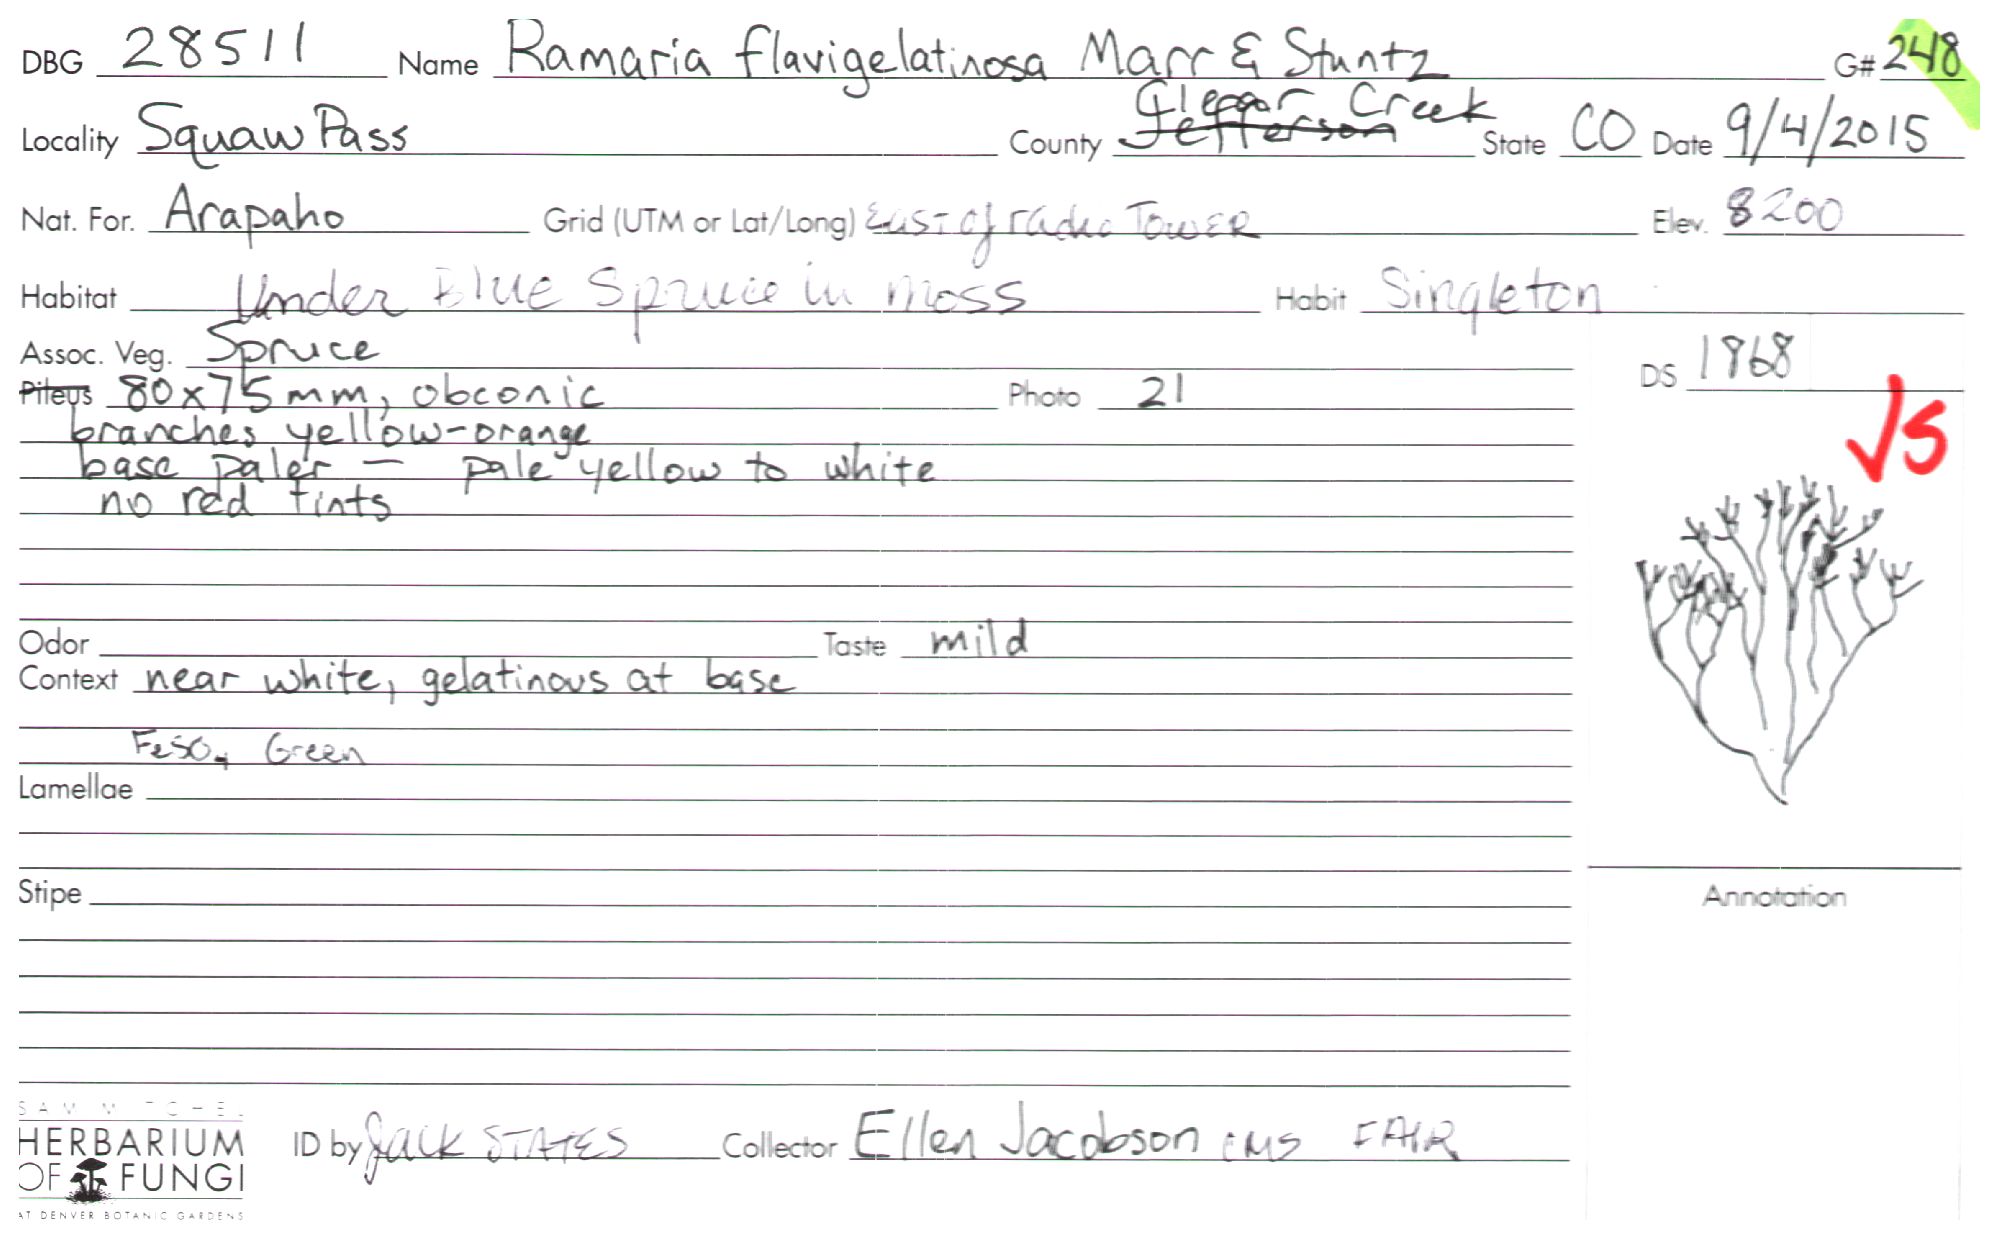 DBG 28511 Name Ramaria flavigelatinosa Marr & Stuntz G# 248
Clear Creek
Locality Squaw Pass County Jefferson State CO Date 9/4/2015
Nat. For. Arapaho Grid (UTM or Lat/Long) East of radio Tower Elev. 8200
Habitat Under Blue Spruce in moss Habit Singleton
Assoc. Veg. Spruce DS 1868
Pileus 80x75mm, obconic Photo 21
branches yellow-orange √S
base paler — pale yellow to white
no red tints
Odor Taste mild
Context near white, gelatinous at base
FeSO4 Green
Lamellae
Stipe Annotation
SAM MITCHEL
HERBARIUM
OF FUNGI
AT DENVER BOTANIC GARDENS
ID by Jack STATES Collector Ellen Jacobson CMS FAIR